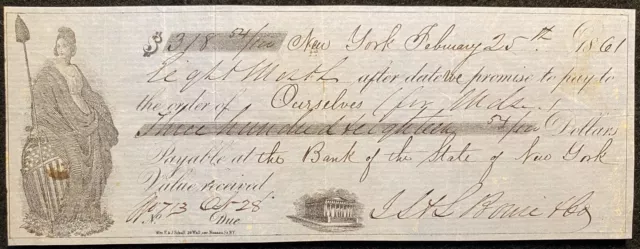 $ 318 54/100 New York February 25th 1861
Eight Months after date we promise to pay to
the order of Ourselves (for Mdse.)
Three hundred & eighteen 54/100 Dollars
Payable at the Bank of the State of New York
Value received
No. 713 Oct 28
Due